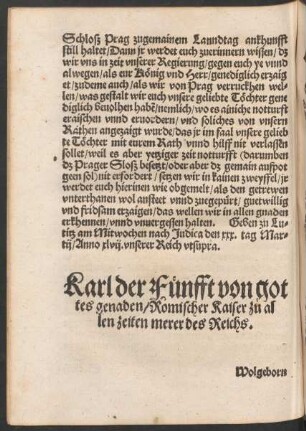 Schloß Prag zugemainem Lanndtag ankhunfft
still haltet/Dann jr werdet euch zuerinnern wissen/dz
wir vns in zeit vnserer Regierung/gegen euch ye vnnd
alwegen/als eur König vnd Herr/genediglich erzaig
et/zudeme auch/als wir von Prag verruckhen wel-
len/was gestalt wir euch vnsere geliebte Töchter gene
diglich beuolhen habē/nemlich/wo es ainiche notturfft
eraischen vnnd eruordern/vnd soliches von vnsern
Räthen angezaigt wurde/das jr im faal vnsere gelieb
te Töchter mit eurem Rath vnnd hilff nit verlassen
sollet/weil es aber yetziger zeit notturfft (darumben
dz Prager Sloß besetzt/oder aber dz gemain aufpot
geen sol) nit erfordert/setzen wir in kainen zweyffel/jr
werdet euch hierinen wie obgemelt/als den getrewen
vnterthanen wol ansteet vnnd zuegepürt/guetwillig
vnd fridsam erzaigen/das wellen wir in allen gnaden
erkhennen/vnnd vnuergessen halten. Geben zu
am Mitwochen nach Judica den xxx. tag Mar-
tij/Anno xlvij. vnserer Reich vtsupra.
Karl der Fünfft von got
tes genaden/Römischer Kaiser zu al
len zeiten merer des Reichs.
Wolgeborn